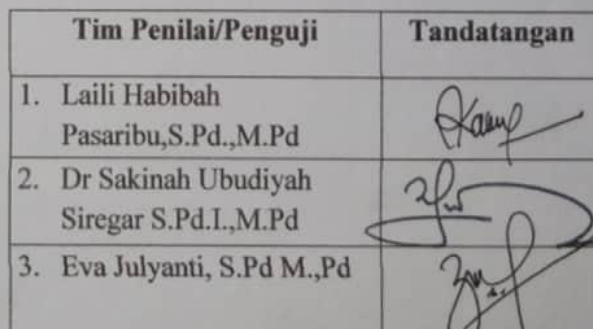 Tim Penilai/Penguji Tandatangan
1. Laili Habibah
Pasaribu,S.Pd.,M.Pd
2. Dr Sakinah Ubudiyah
Siregar S.Pd.I.,M.Pd
3. Eva Julyanti, S.Pd M.,Pd